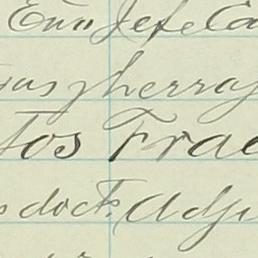 Euo Jefe Ca
ias y herray
tos Frac
s doct. Adju